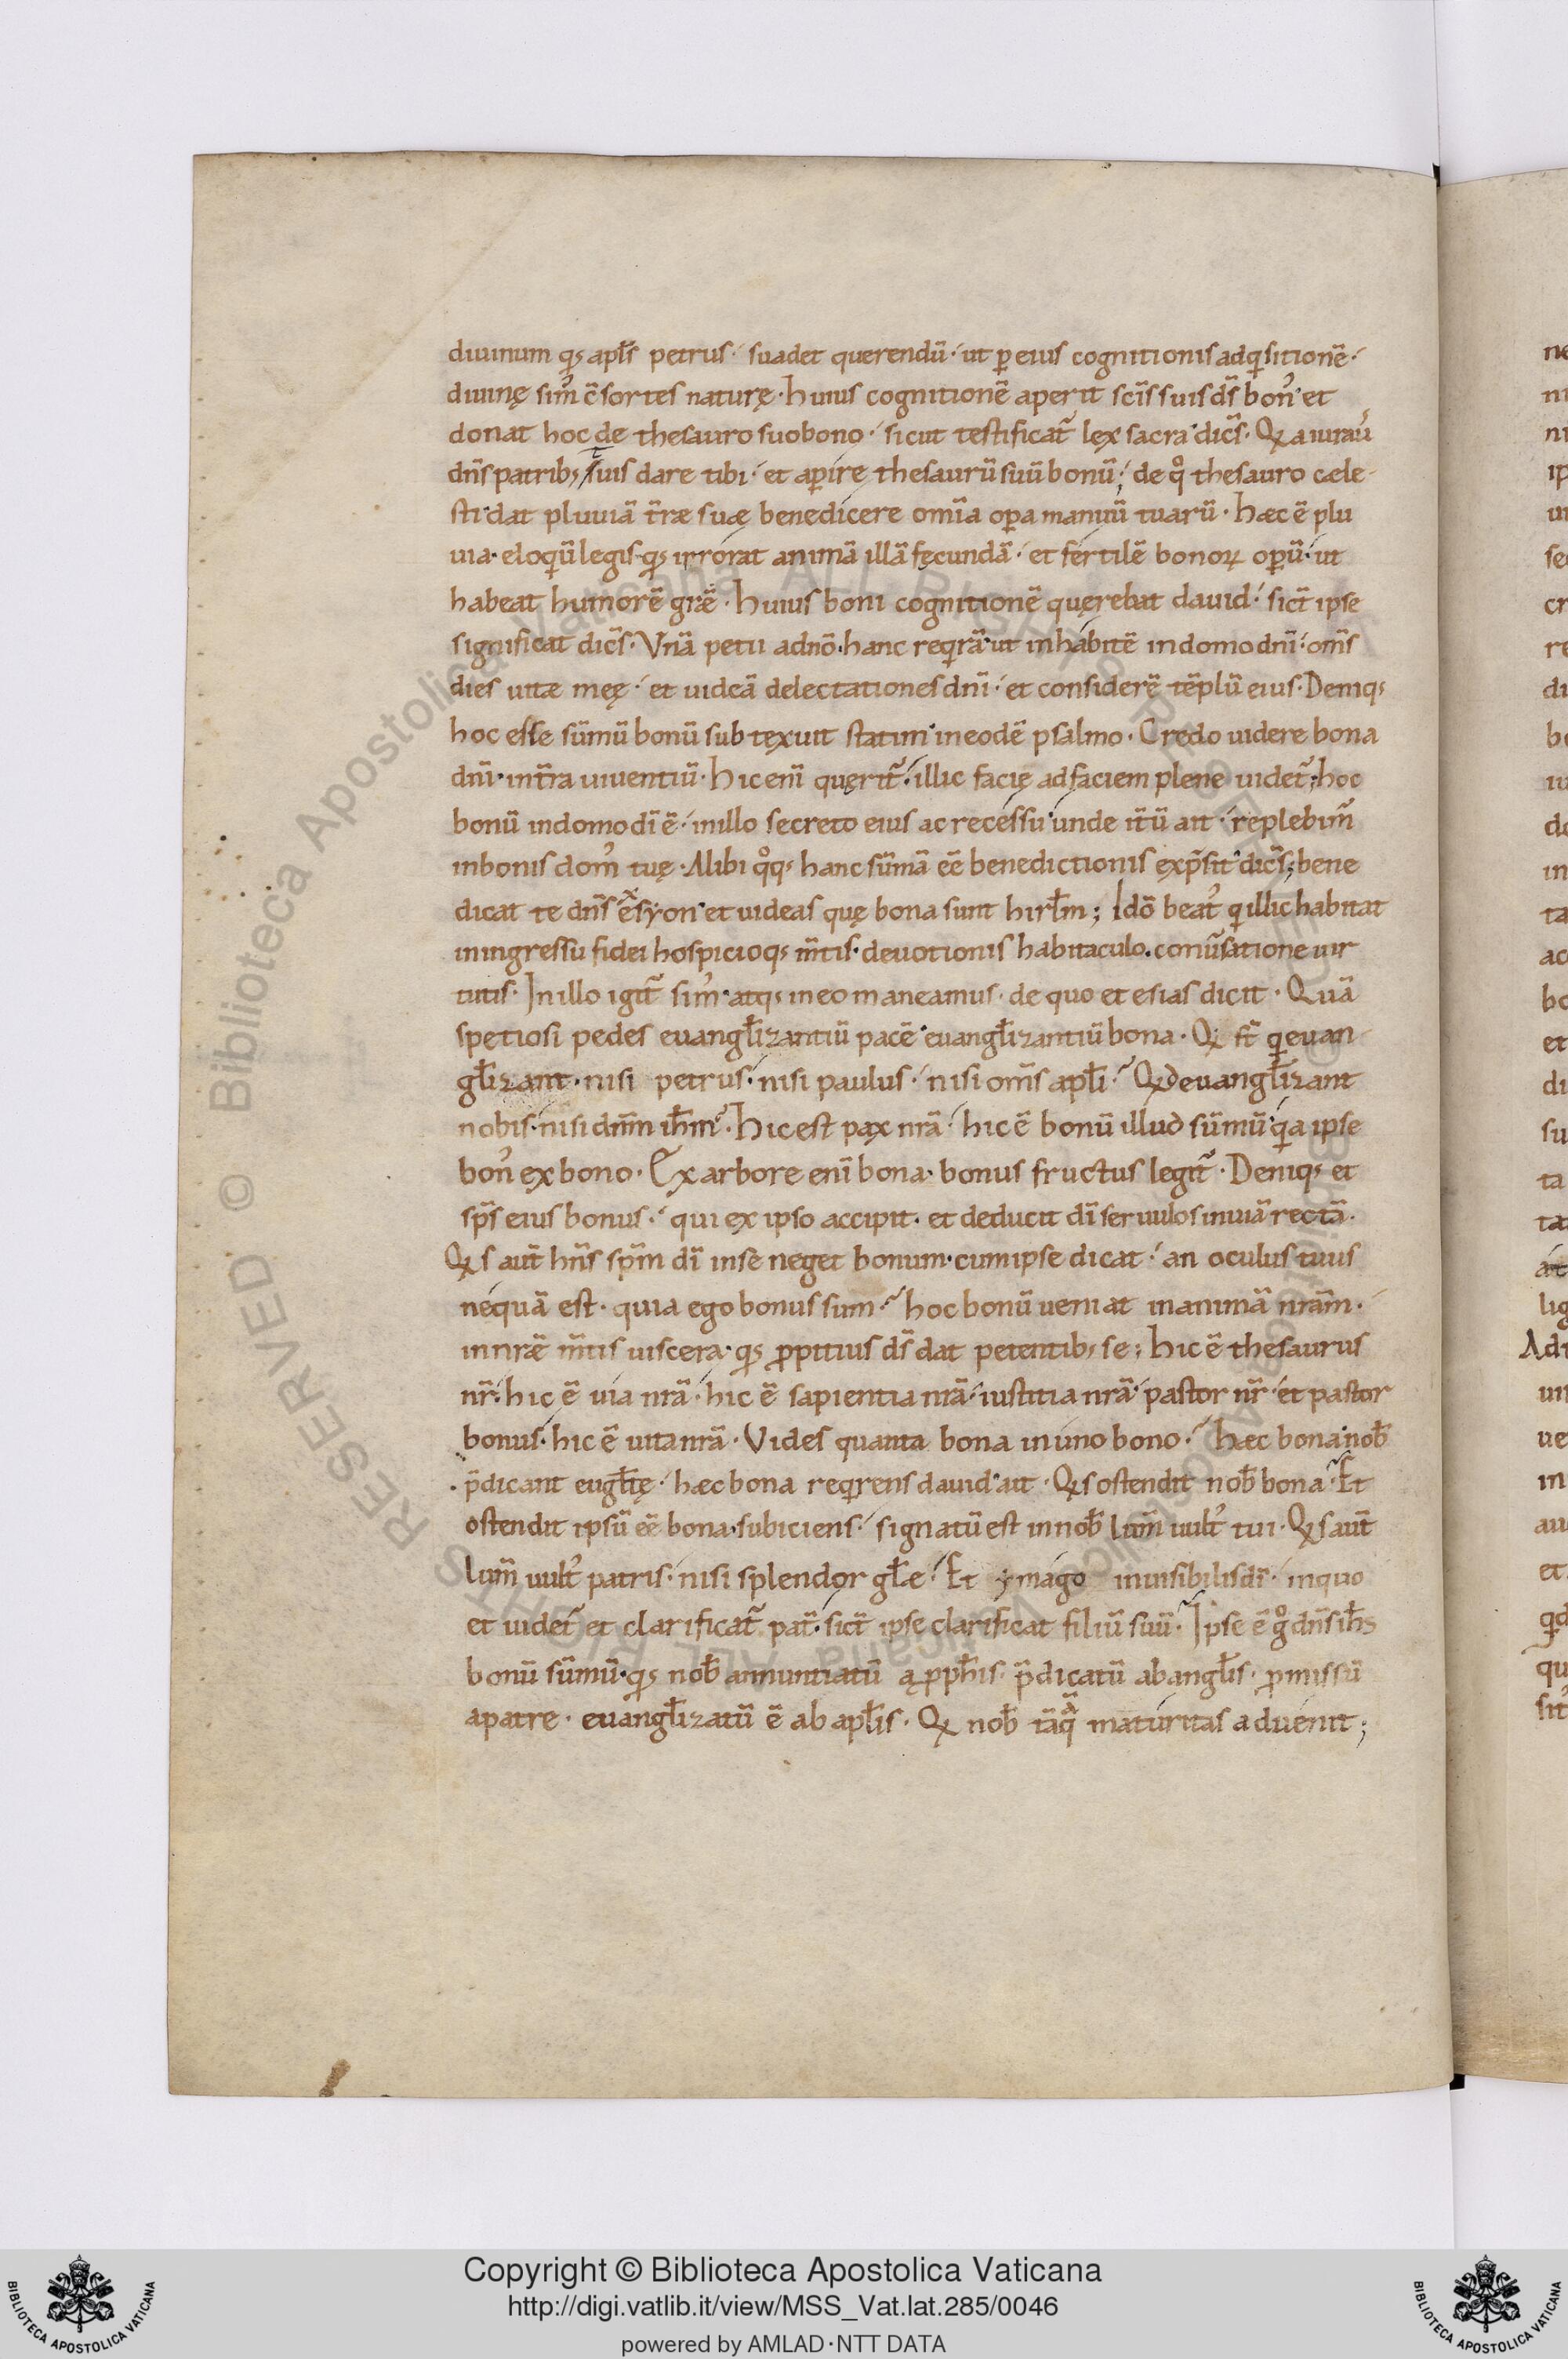 diuinum qđ apl̄s petrus suadet querendū· ut p̱ eius cognitionis adqͥsitionē·
diuinę sim᷒ c̄sortes naturę· huius cognitionē aperit sc̄is suis ds̄ bon᷒· et
donat hoc de thesauro suo bono· sicut testificat̃ lex sacra dic̄s· Qͥa iurau̅
dn̄s patrib; suis dare tibi· et ap̱ire thesaurū suū bonū; de qͦ thesauro cæle
sti dat pluuiā t̄ræ suæ benedicere om̄ia op̱a manuū tuarū· hæc ē plu
uia· eloqͥū legis· qđ irrorat animā illā fęcundā· et fertilē bonoꝝ op̱ū· ut
habeat humorē gr̄æ· huius boni cognitionē quęrebat dauid· sic̄t ipse
significat dic̄s· Vnā petii a dn̄o· hanc reqͥrā· ut inhabitē in domo dn̄i· om̄s
dies uitæ meę· et uideā delectationes dn̄i· et considerē tēplū eius· Deniq;
hoc esse sūmū bonū subtexuit statim in eodē psalmo· Credo uidere bona
dn̄i· in t̄ra uiuentiū· hic enī quęrit̃· illic facię ad faciem plene uidet̃; hoc
bonū in domo dī ē· in illo secreto eius ac recessu· unde it̄ū ait· replebim̃
in bonis dom᷒ tuę· Alibi qͦq; hanc sūmā eē benedictionis exp̄sit dic̄s; bene
dicat te dn̄s ex syon· et uideas quę bona sunt hirl̄m; Idō beat᷒ qͥ illic habitat
in ingressu fidei hospicioq; m̄tis· deuotionis habitaculo· conūsatione uir
tutis· In illo igit̃ sim᷒· atq; in eo maneamus· de quo et esias dicit· Quā
spetiosi pedes euangl̄izantiū pacē· euangl̄izantiū bona· Qͥ st̄ qͥ euan
gl̄izant· nisi petrus· nisi paulus· nisi om̄s apl̄i· Qͥd euangl̄izant
nobis· nisi dn̄m ih̄m· hic est pax nr̄a· hic ē bonū illud sūmū· qͥa ipse
bon᷒ ex bono· Ex arbore enī bona· bonus fructus legit̃· Deniq; et
sp̄s eius bonus· qui ex ipso accipit· et deducit dī seruulos in uiā rectā·
Qͥs aut̄ hn̄s sp̄m dī in se neget bonum· cum ipse dicat· an oculus tuus
nequā est· quia ego bonus sum· hoc bonū ueniat in animā nr̄am·
in nr̄æ m̄tis uiscera· qđ ꝓpitius ds̄ dat petentib; se; hic ē thesaurus
nr̄· hic ē uia nr̄a· hic ē sapientia nr̄a· iustitia nr̄a· pastor nr̄· et pastor
bonus· hic ē uita nr̄a· Vides quanta bona in uno bono· hæc bona nob̄
p̄dicant eugl̄ię· hæc bona reqͥrens dauid· ait· Qͥs ostendit nob̄ bona· Et
ostendit ipsū eē bona· subiciens· signatū est in nob̄ lum̄ uult᷒ tui· Qͥs aut̄
lum̄ uult᷒ patris· nisi splendor gl̄æ· Et ymago inuisibilis dī· in quo
et uidet̃ et clarificat̃ pat̄· sic̄t ipse clarificat filiū suū· Ipse ē gͦ dn̄s ih̄s
bonū sūmū· qđ nob̄ annuntiatū a ꝓph̄is· p̄dicatū ab angl̄is· ꝓmissū
a patre· euangl̄izatū ē ab apl̄is· Qͥ nob̄ tāqͣ̄ maturitas aduenit;
Copyright © Biblioteca Apostolica Vaticana
http://digi.vatlib.it/view/MSS_Vat.lat.285/0046
powered by AMLAD·NTT DATA